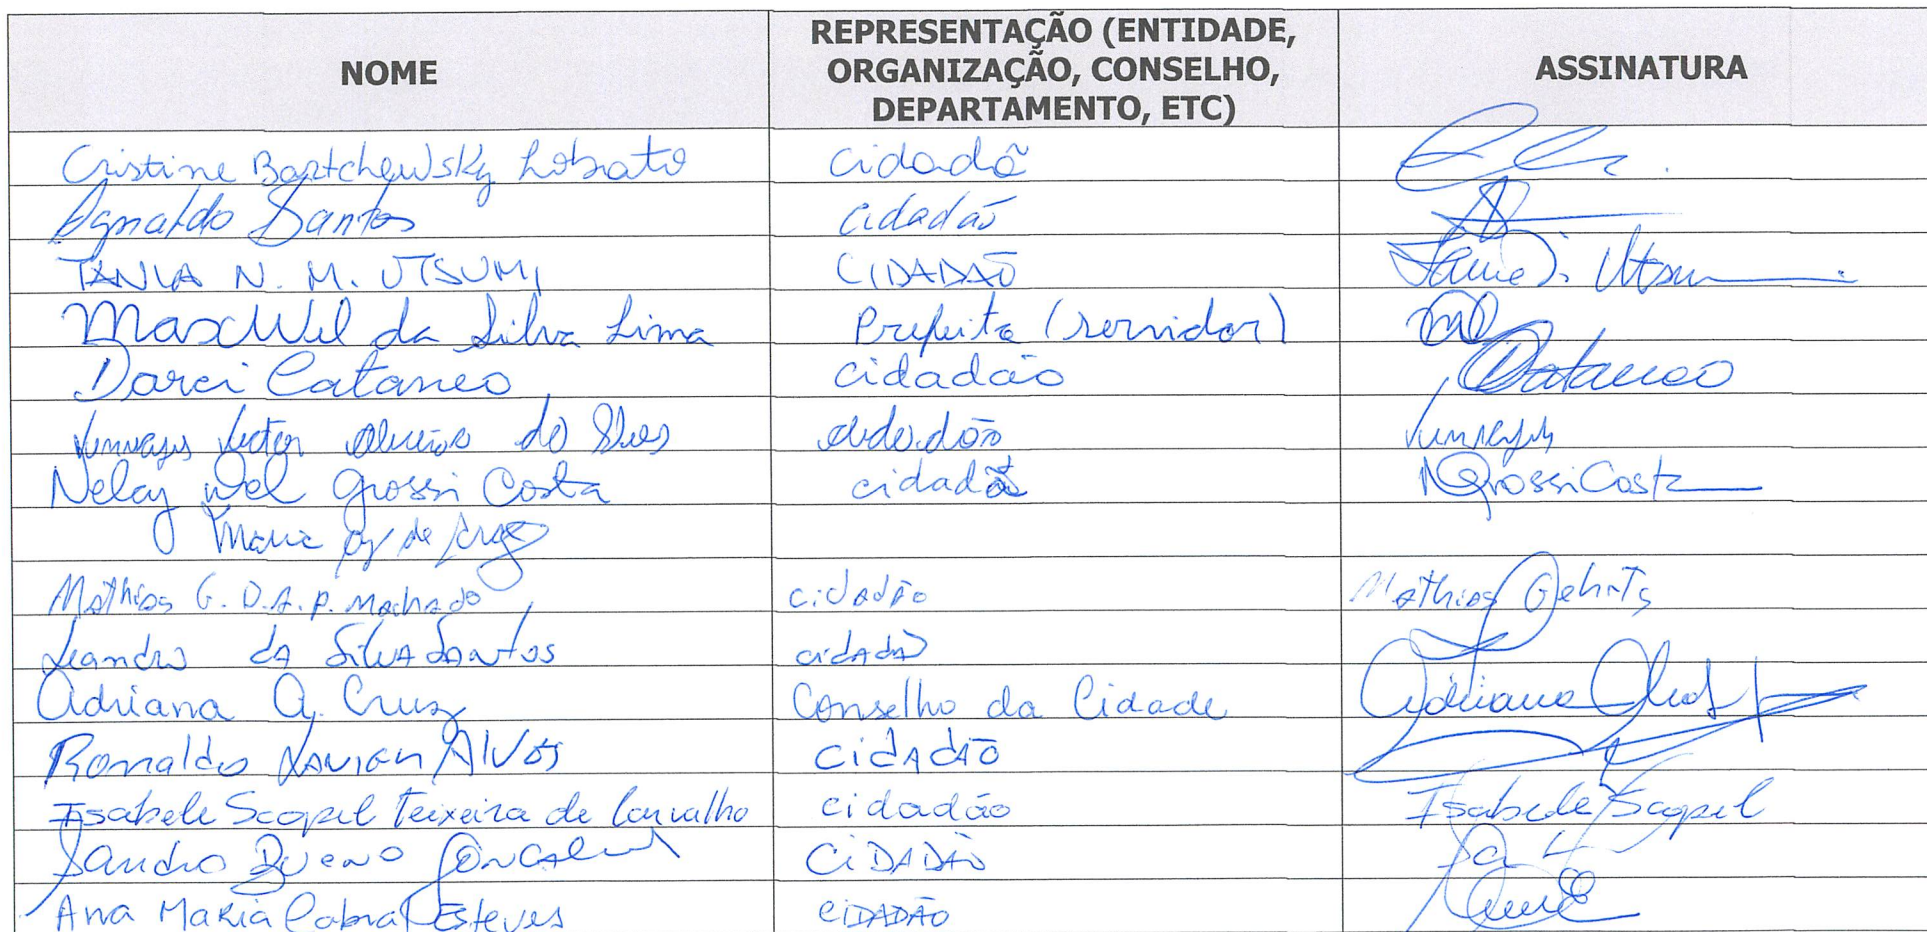 NOME
REPRESENTAÇÃO (ENTIDADE,
ORGANIZAÇÃO, CONSELHO,
DEPARTAMENTO, ETC)
ASSINATURA
Cristine Bartchewsky Lobato cidadã
Agnaldo Santos cidadão
TANIA N. M. UTSUMI CIDADÃO
Maxwel da Silva Lima Prefeita (servidor)
Darci Cataneo cidadão Cataneo
cidadão
Nelcy Wel Grossi Costa cidadã NGrossiCosta
Maria de
Mathias G. D.A.P. Machado cidadão Mathias
Leandro da Silva Santos cidadão
Adriana A. Cruz Conselho da Cidade Adriana
Ronaldo Alves cidadão
Isabele Scopel Teixeira de Carvalho cidadão Isabele Scopel
Sandro Bueno Goncalves CIDADÃO
Ana Maria Cabral Esteves CIDADÃO